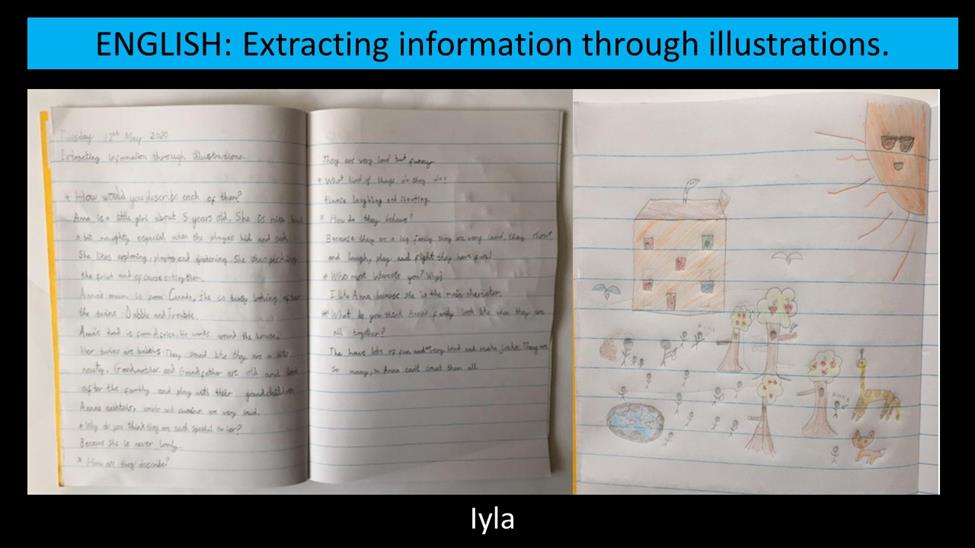 ENGLISH: Extracting information through illustrations.
Tuesday 12th May 2020
Extracting information through illustrations.
* How would you describe each of them?
Anna is a little girl about 5 years old. She is nice but
a bit naughty especial when she playes hid and seek.
She likes exploring, playing and gardening. She likes picking
the fruit and of course eating them.
Anna's mum is from Canada, she is busy looking after
the twins Dobble and Trouble.
Anna's dad is from Africa. He works around the house.
Her twins are babies. They sound like they are a bit
nauty. Grandmother and Grandfather are old and look
after the family and play with their grandchildren
Annas
uncle
are very loud.
* Why do you think they are each special to her?
Because she is never lonly.
* How are they
They are very loud but funny
* What kind of things do they do?
laughing and
* How do they behave?
Because they are a big family they are very loud, they shout
and laugh, play and fight they have fun!
* Who most interests you? Why?
I like Anna because she is the main character.
* What do you think Annas family look like when they are
all together?
The have lots of fun and very loud and make jokes. They are
so many, so Anna cant count them all.
Iyla